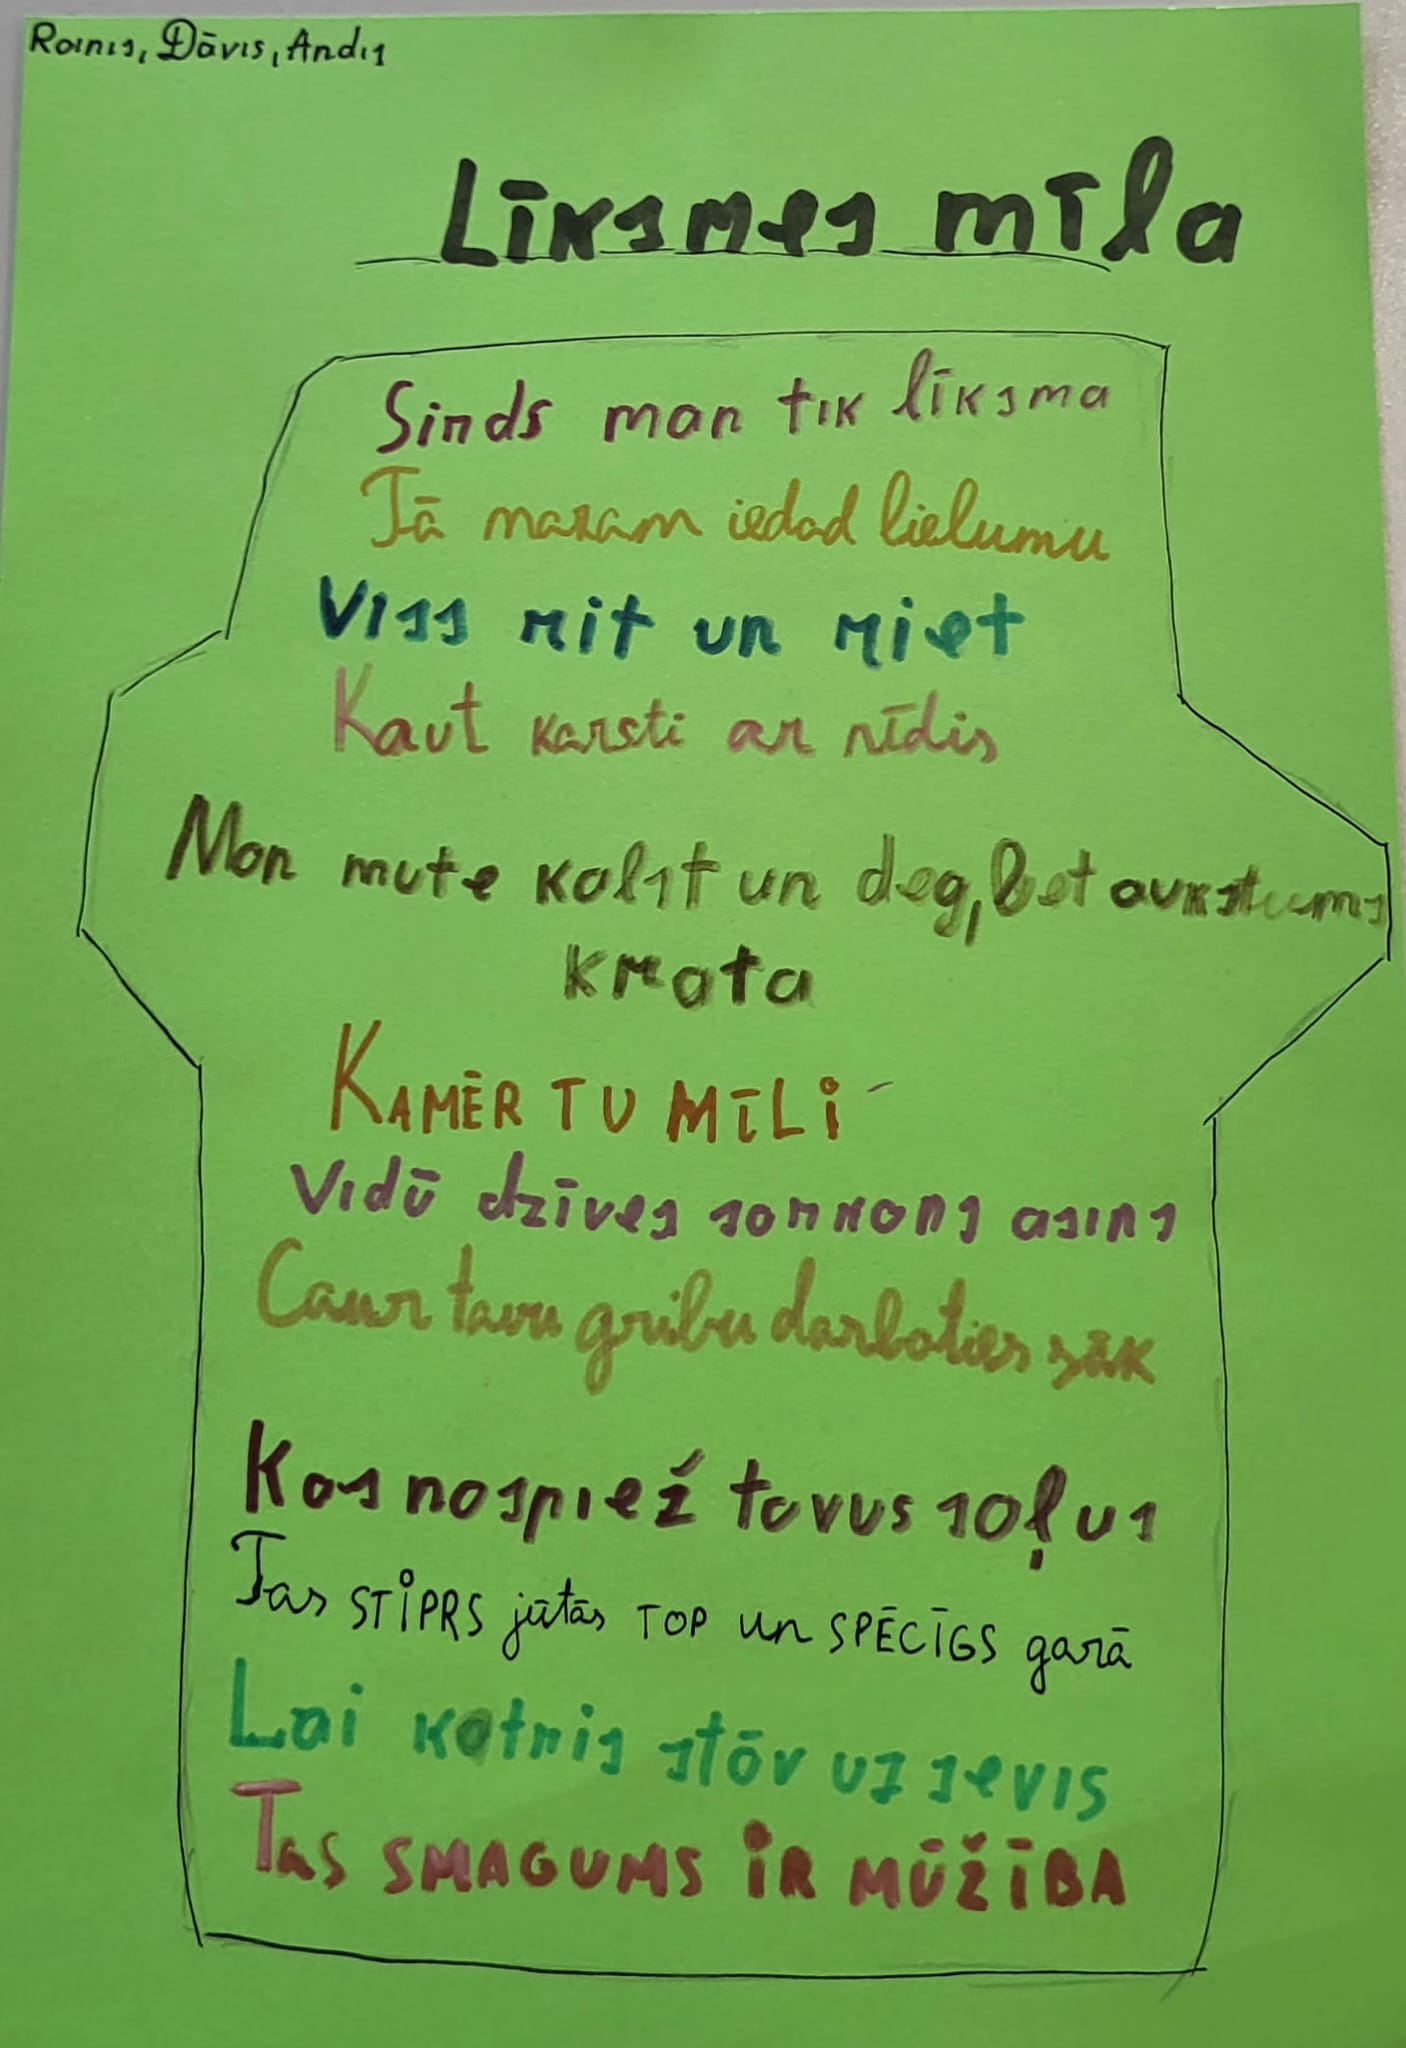 Rainis, Dāvis, Andis
Līksmes mīla
Sirds man tik līksma
Tā mazam iedod lielumu
Viss rit un riet
Kaut karsti ar nīdis
Man mute kalst un deg, bet aukstums
krata
KAMĒR TU MĪLI
Vidū dzīves sarkans asins
Caur tavu gribu darboties sāk
Kas nospiež tavus soļus
Tas STIPRS jūtās TOP un SPĒCĪGS garā
Lai katris stāv uz sevis
TAS SMAGUMS IR MŪŽĪBA